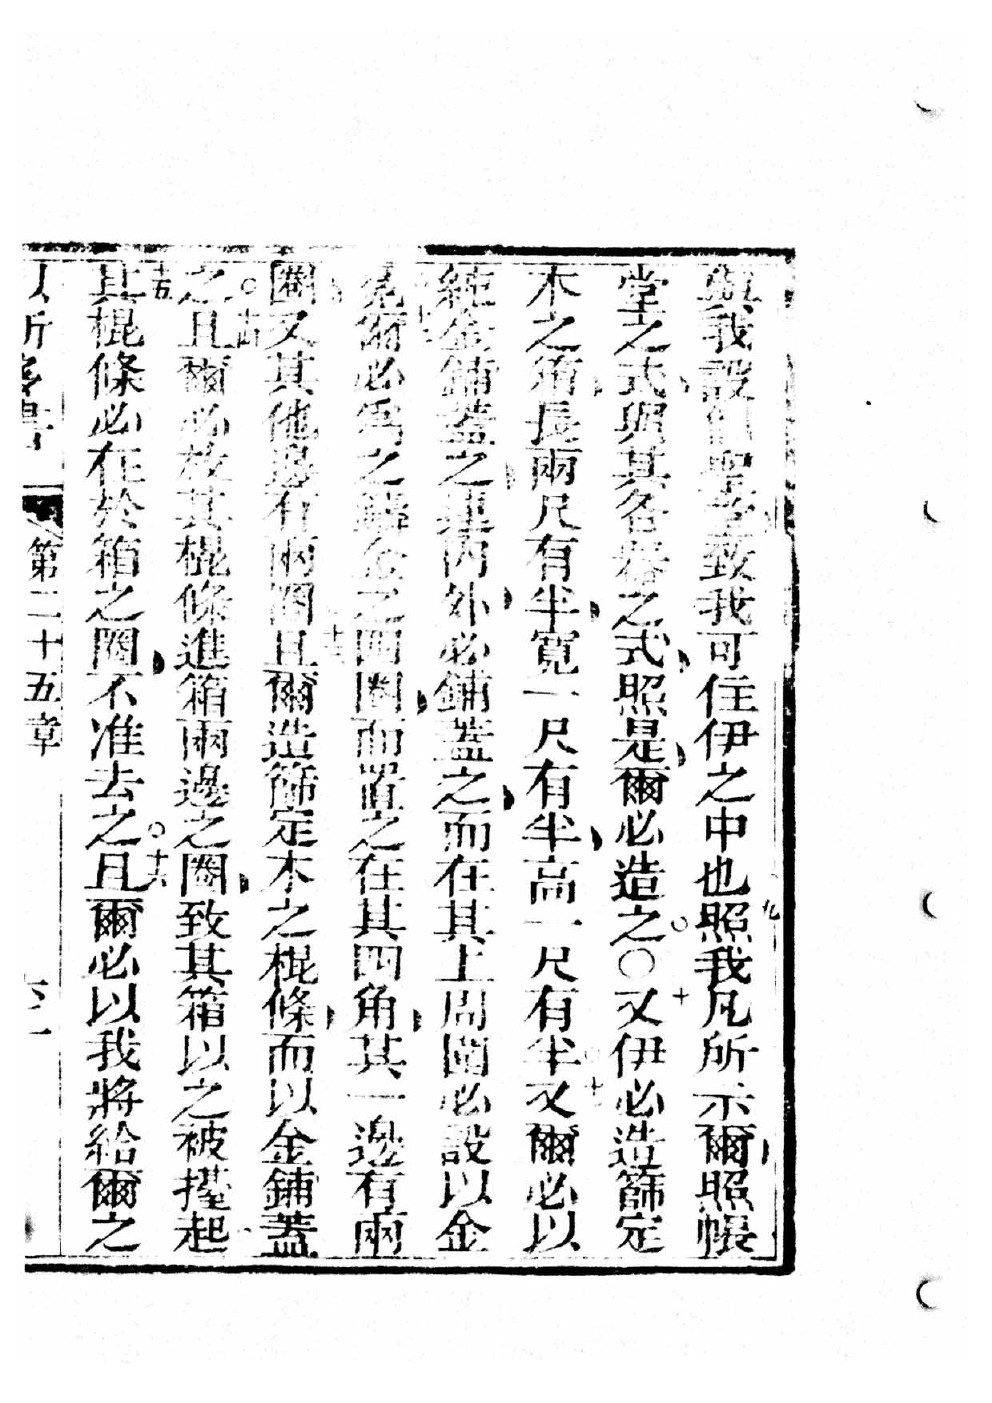 與我設們聖堂致我可住伊之中也九照我凡所示爾照帳
堂之式與其各器之式照是爾必造之○十又伊必造篩定
木之箱長兩尺有半寬一尺有半高一尺有半十一又爾必以
純金鋪蓋之連內外必鋪蓋之而在其上周圍必設以金
爾必為之鑄金之四圈而置之在其四角其一邊有兩
圈又其他邊有兩圈十三且爾造篩定木之棍條而以金鋪蓋
之十四且爾必放其棍條進箱兩邊之圈致其箱以之被擡起
十五其棍條必在於箱之圈不准去之十六且爾必以我將給爾之
第二十五章